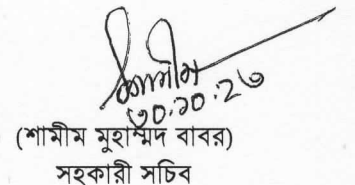 শামীম
৩০.১০.২৩
(শামীম মুহাম্মদ বাবর)
সহকারী সচিব